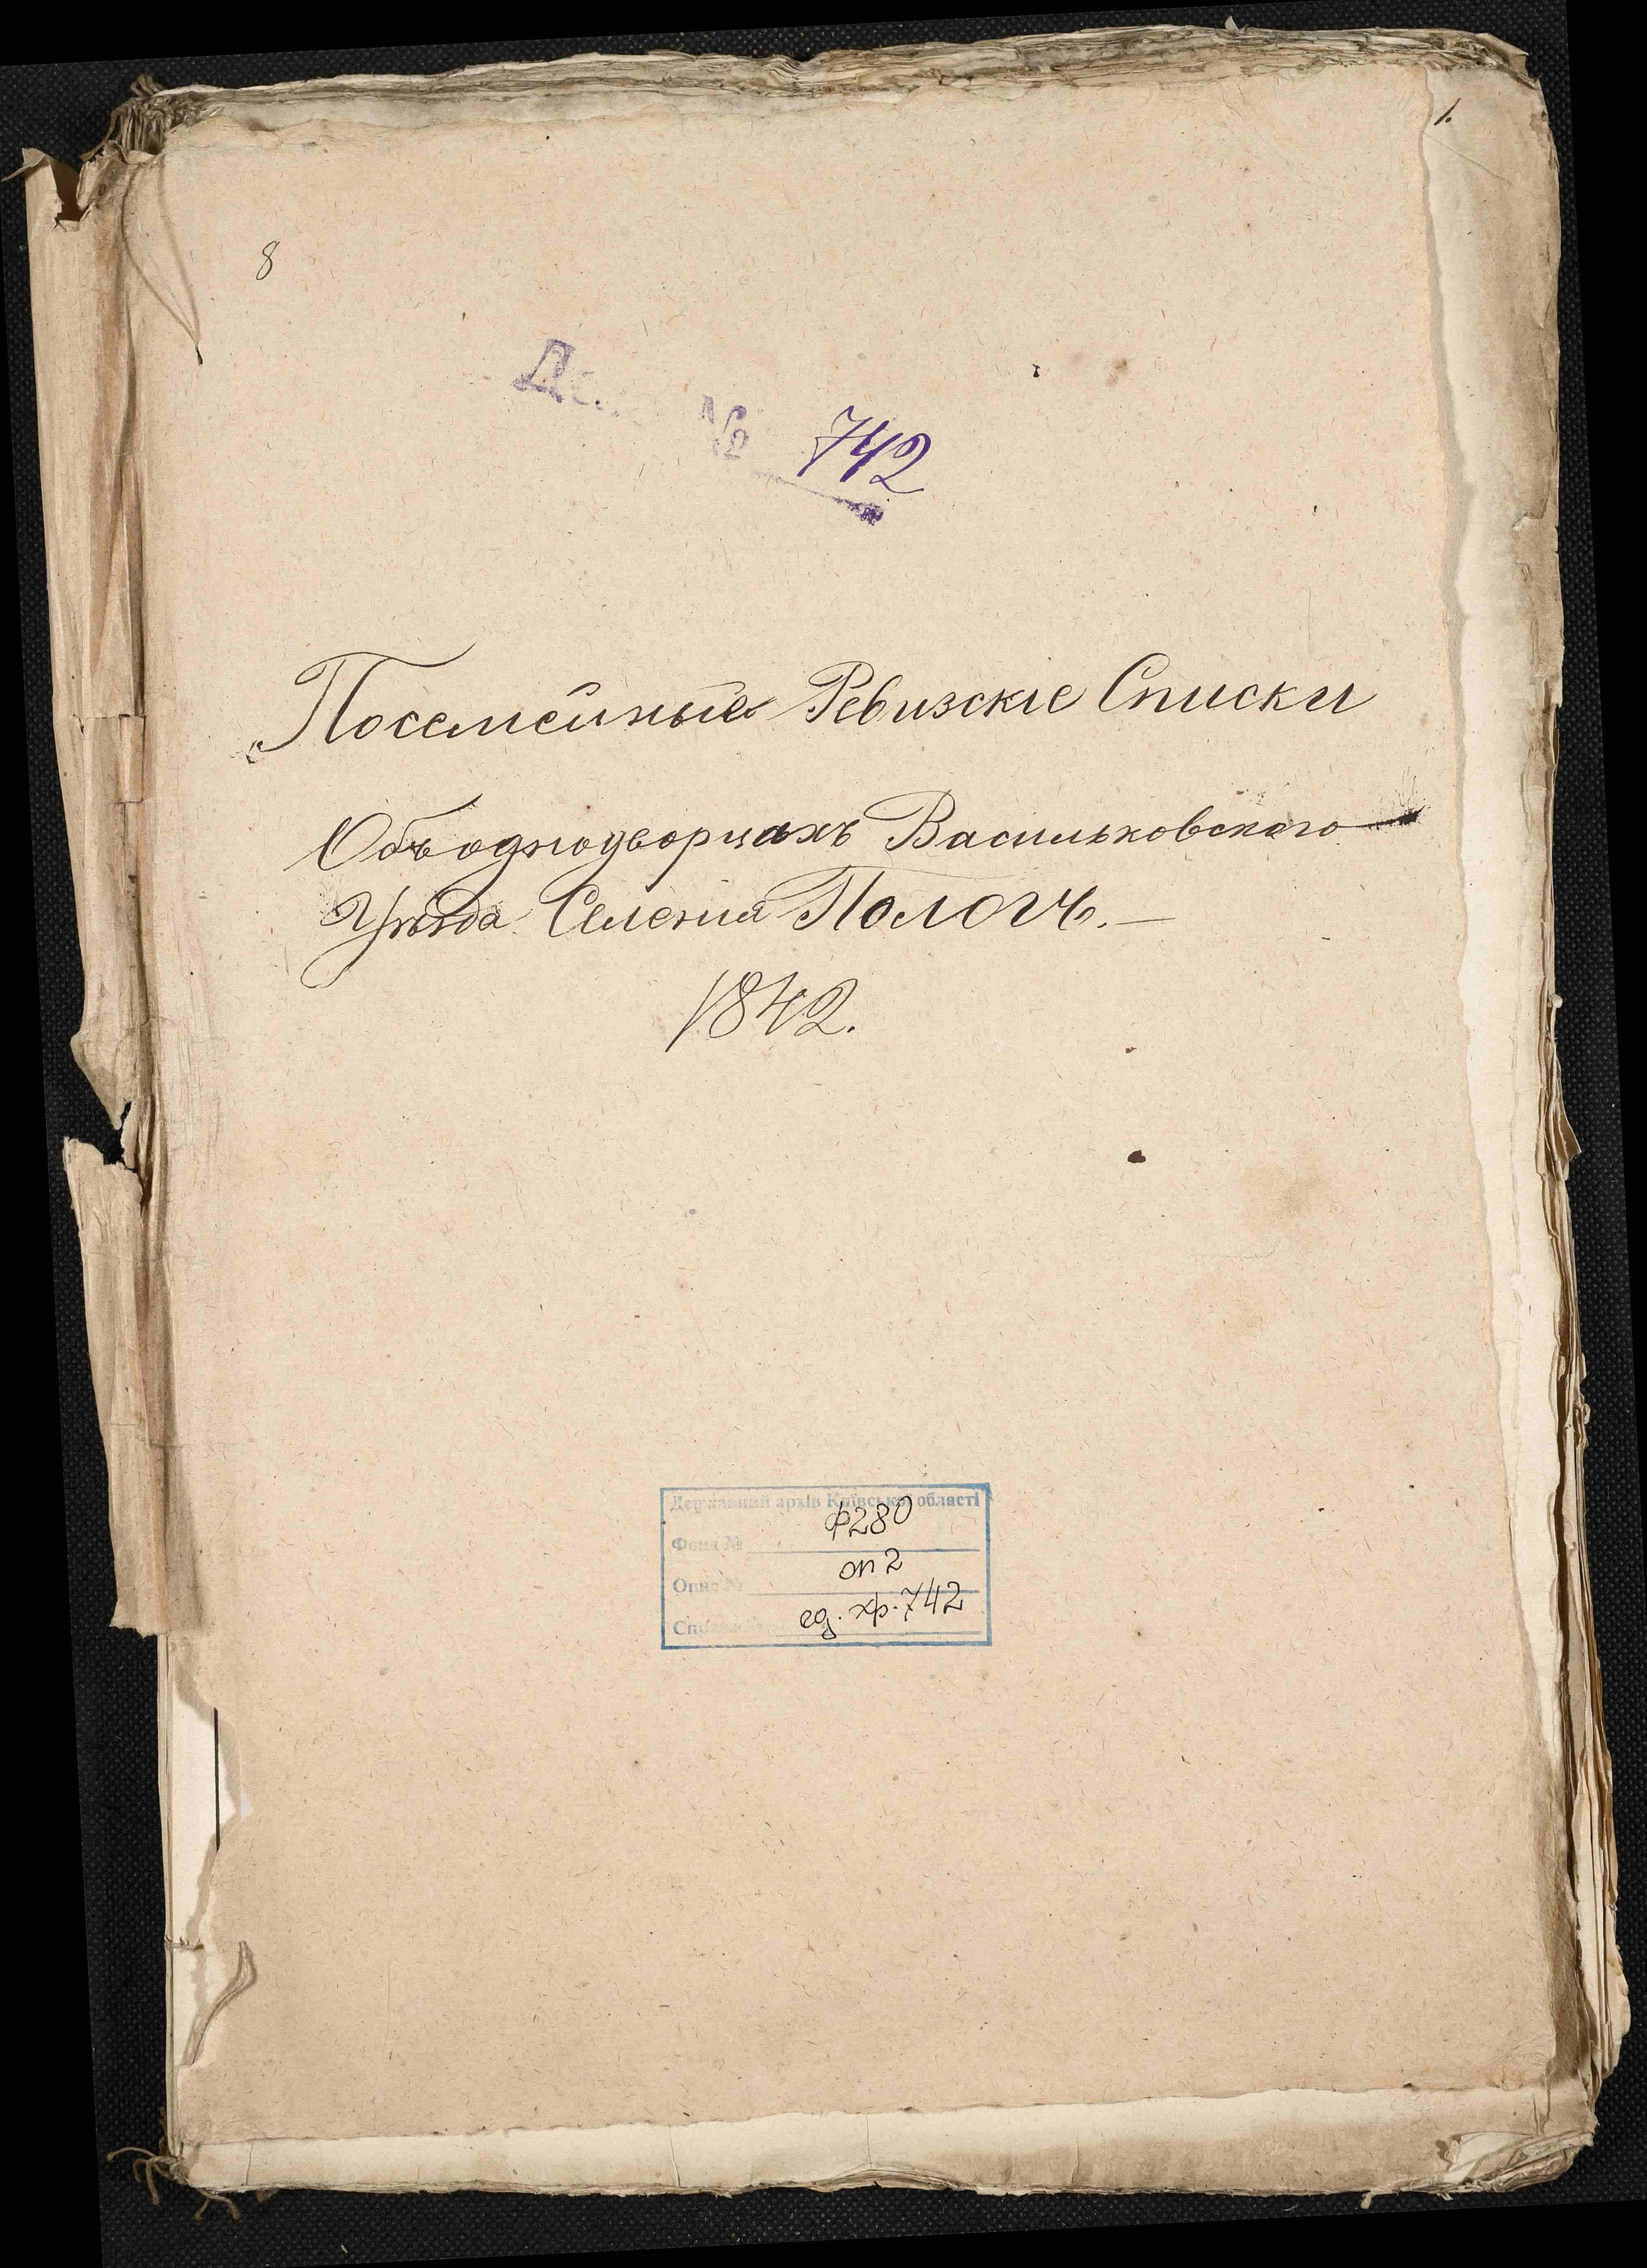 1.
8
Де № 742
Посемейные Ревизскіе Списки
Объ однодворцахъ Васильковскаго
Уѣзда Селенія Пологъ.—
1842.
Державний архів Київської області
Фонд № ф 280
Опис № оп 2
Справа № ед. хр. 742